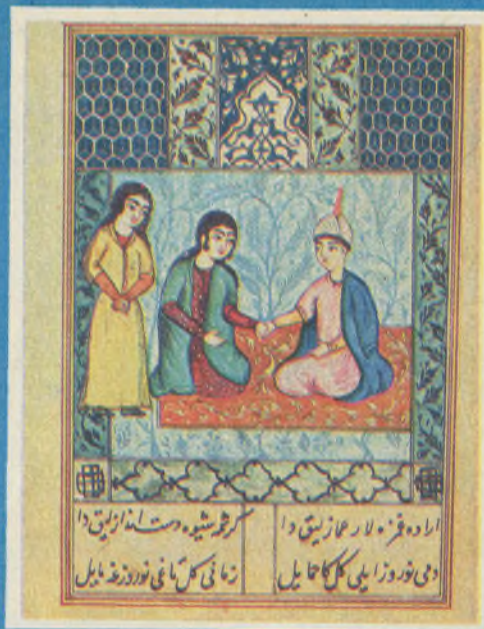 اراده غمزه لار غمازلیق دا کرشمه شیوه دست اندازلیق دا
دمی نوروز ایلی کل کا حمایل زمانی کل باغی نوروزغه مایل